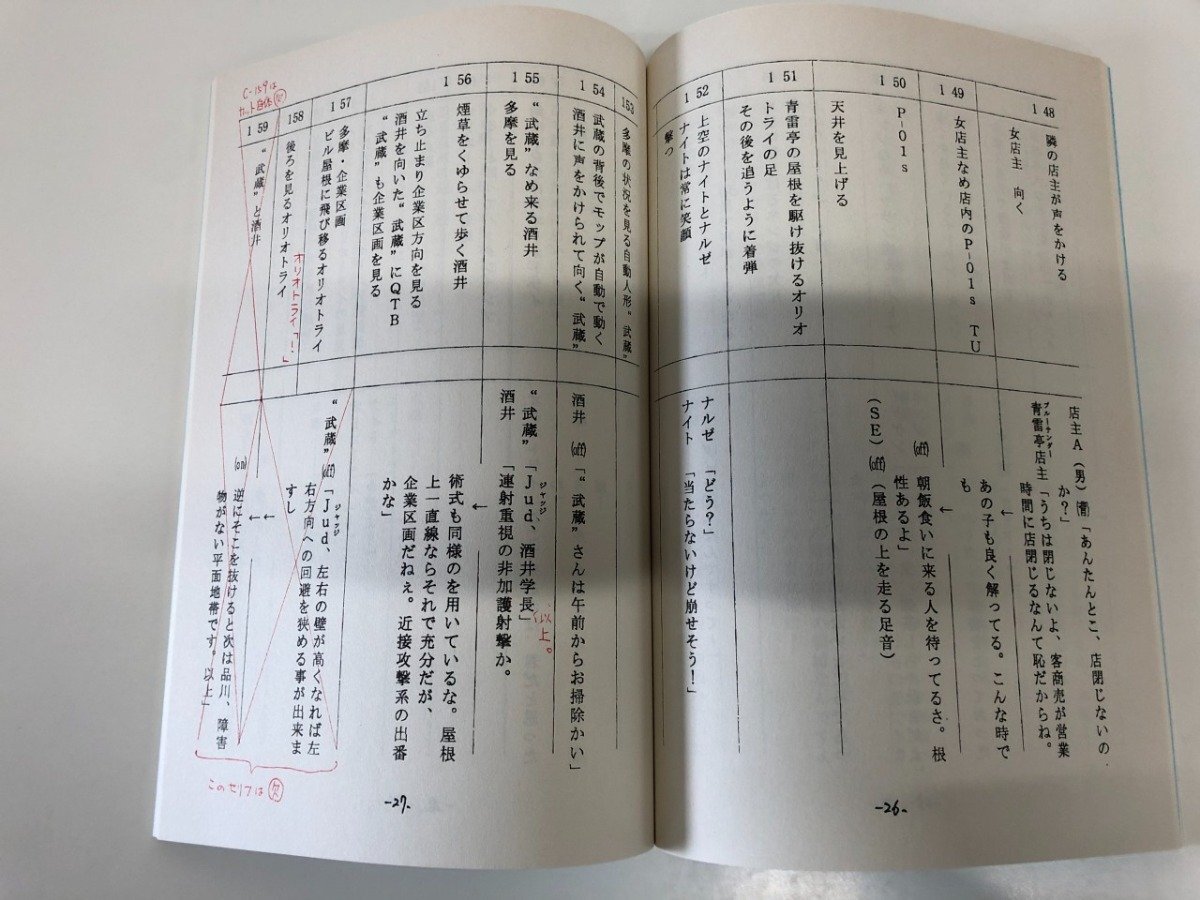 148
隣の店主が声をかける
女店主 向く
店主A(男)(前)「あんたんとこ、店閉じないの
か?」
ブルーサンダー
青雷亭店主「うちは閉じないよ、客商売が営業
時間に店閉じるなんて恥だからね。
149
女店主なめ店内のP-01s TU
←
あの子も良く解ってる。こんな時で
も
150
P-01s
天井を見上げる
←
(off)
朝飯食いに来る人を待ってるさ。根
性あるよ」
(SE)(off)(屋根の上を走る足音)
151
青雷亭の屋根を駆け抜けるオリオ
トライの足
その後を追うように着弾
152
上空のナイトとナルゼ
ナイトは常に笑顔
撃つ
ナルゼ 「どう?」
ナイト 「当たらないけど崩せそう!」
-26-
153
多摩の状況を見る自動人形“武蔵”
154
武蔵の背後でモップが自動で動く
酒井に声をかけられて向く“武蔵”
酒井 (off)「“武蔵”さんは午前からお掃除かい」
155
“武蔵”なめ来る酒井
多摩を見る
ジャッジ
“武蔵”「Jud、酒井学長」
以上。
酒井 「連射重視の非加護射撃か。
156
煙草をくゆらせて歩く酒井
立ち止まり企業区方向を見る
酒井を向いた“武蔵”にQTB
“武蔵”も企業区画を見る
←
術式も同様のを用いているな。屋根
上一直線ならそれで充分だが、
企業区画だねぇ。近接攻撃系の出番
かな」
157
多摩・企業区画
ビル屋根に飛び移るオリオトライ
ジャッジ
“武蔵”(off)「Jud、左右の壁が高くなれば左
右方向への回避を狭める事が出来ま
すし
158
後ろを見るオリオトライ
オリオトライ「!」
←
C-159は
カット自体欠
159
“武蔵”と酒井
←
(on)
逆にそこを抜けると次は品川、障害
物がない平面地帯です。以上」
このセリフは欠
-27-